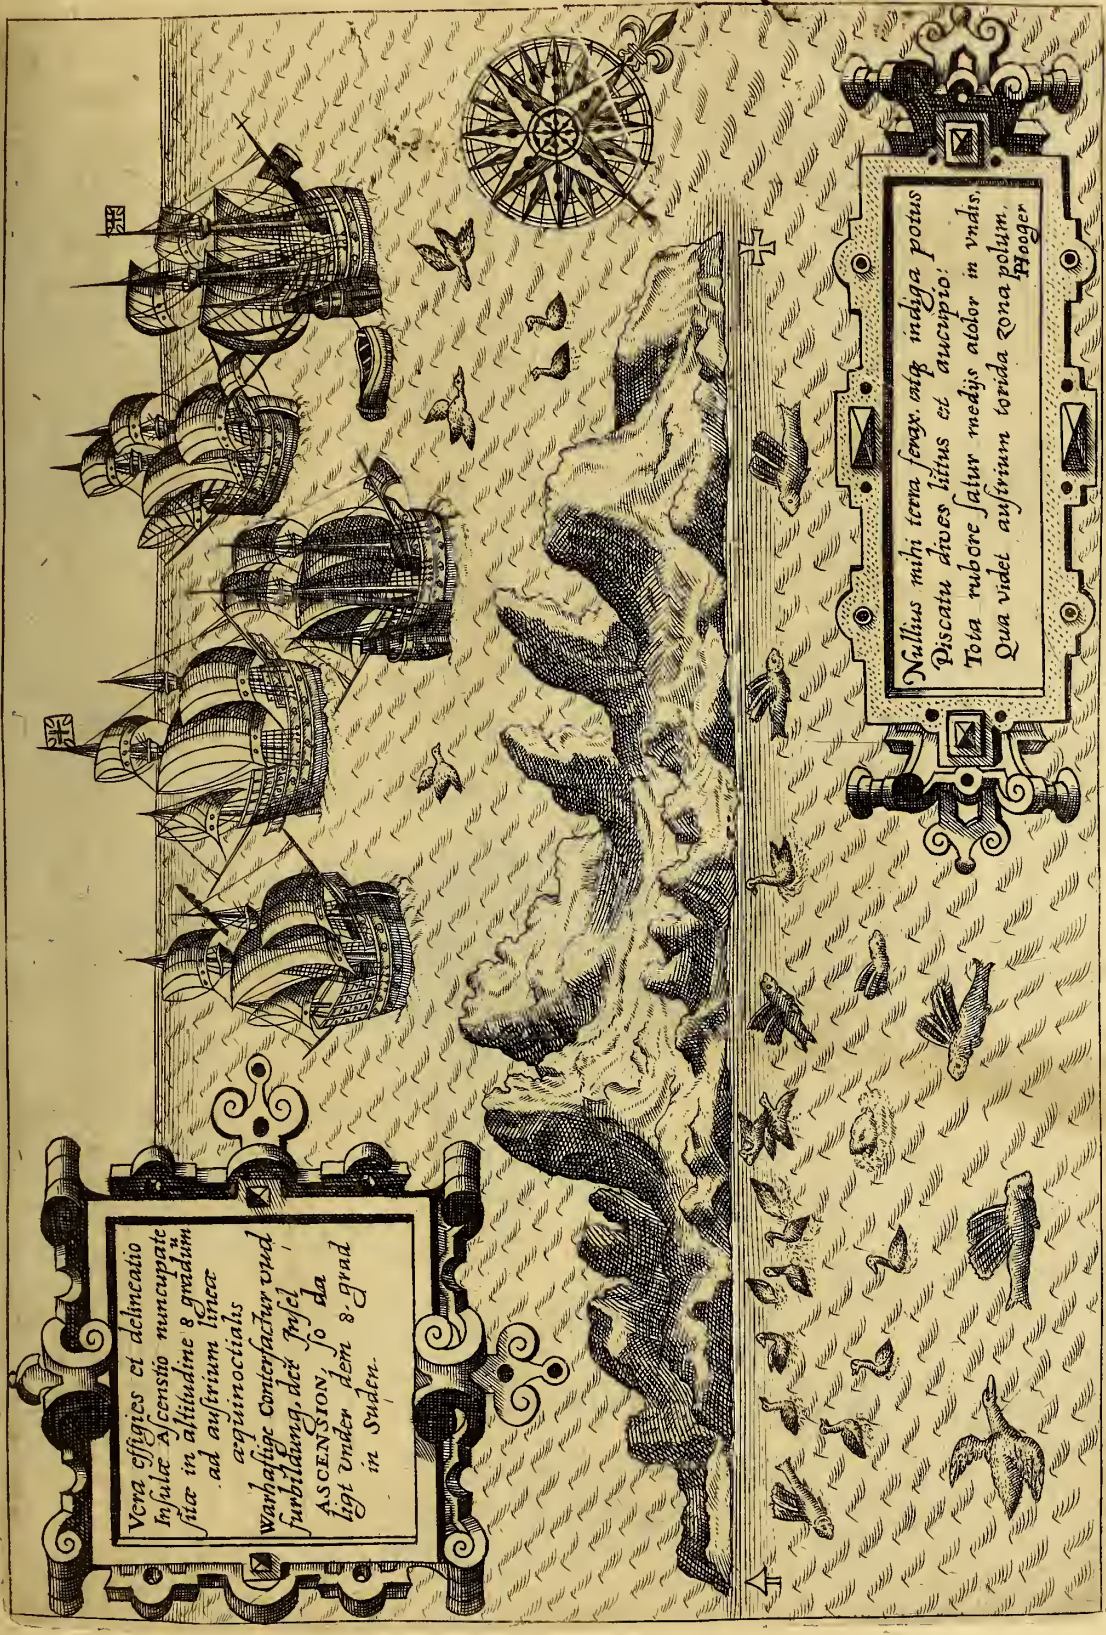 Vera effigies et delineatio
Insulæ Ascensio nuncupate
sitæ in altitudine 8 graduum
ad austrium lineæ
æquinoctialis
Warhaftige Conterfactur vnd
furbildung, der Insel
ASCENSION, so da
ligt vnder dem 8. grad
in Suden.
Nullius mihi terra ferax. mtq indiga potus
Piscatu dives littus et aucupio:
Tota rubore satur medijs atolor in vndis
Qua videt austrium torida zona polum.
Hooger